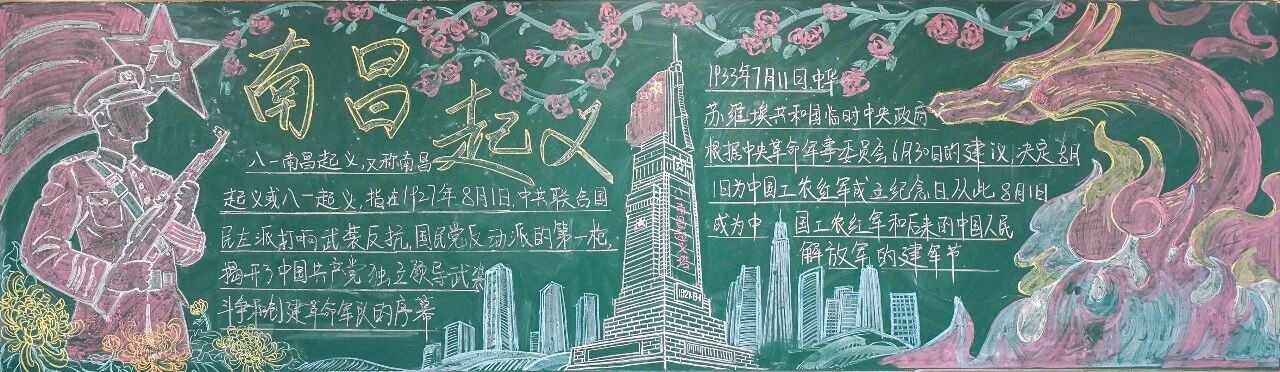 八一
南昌起义
八一南昌起义,又称南昌
起义或八一起义,指在1927年8月1日,中共联合国
民左派打响武装反抗,国民党反动派的第一枪,
揭开了中国共产党独立领导武装
斗争和创建革命军队的序幕
1933年7月11日,中华
苏维埃共和国临时中央政府
根据中央革命军事委员会6月30日的建议,决定8月
1日为中国工农红军成立纪念日,从此,8月1日
成为中国工农红军和后来的中国人民
解放军的建军节